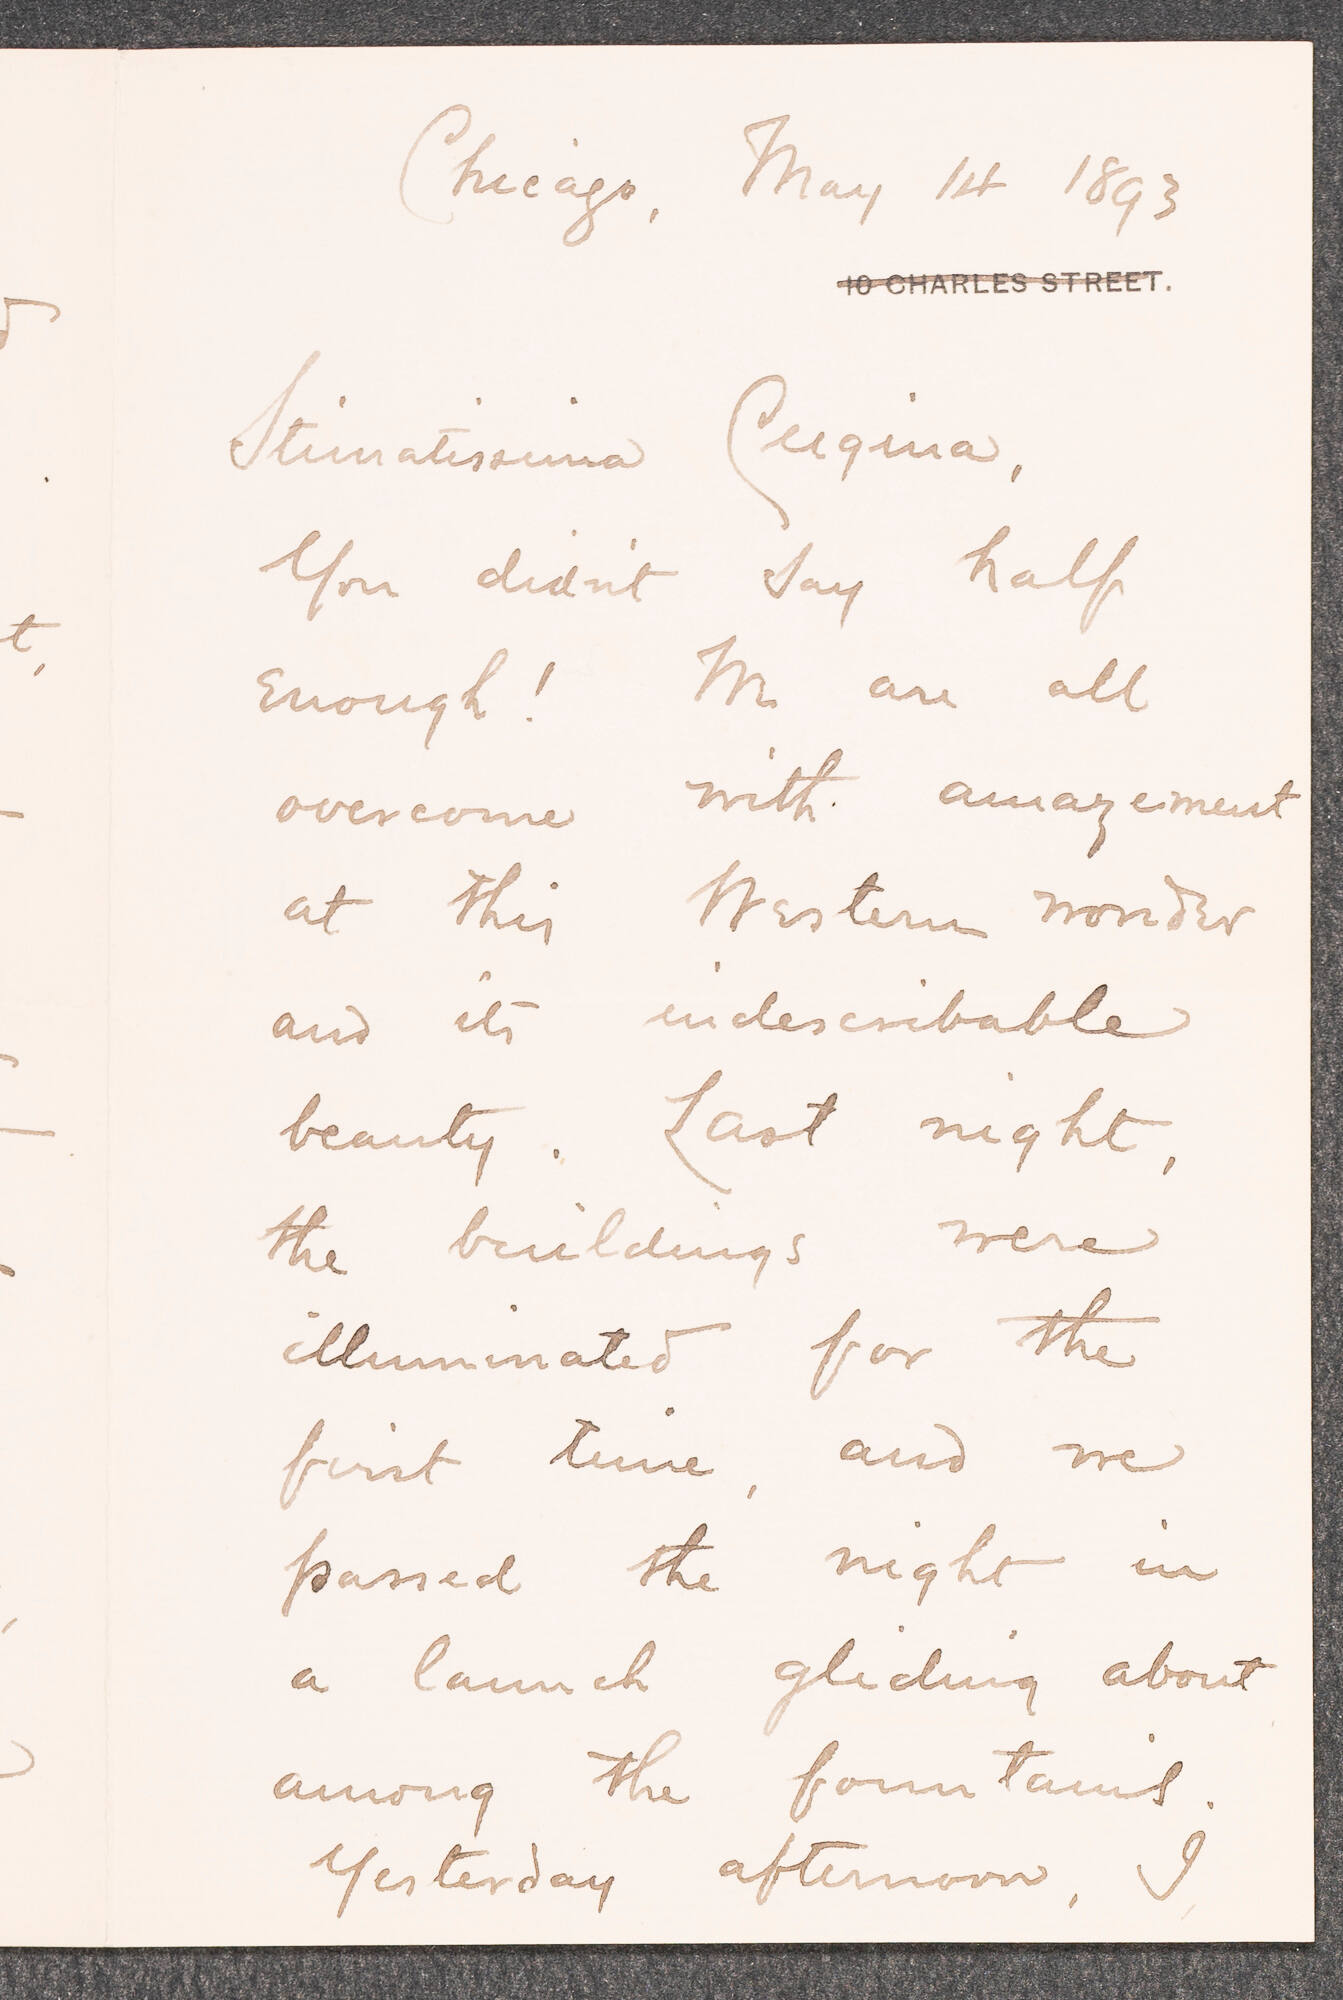 Chicago, May 14 1893
10 CHARLES STREET.
Stimatissima Cugina,
You didn't say half
enough! We are all
overcome with amazement
at this Western wonder
and its indescribable
beauty. Last night,
the buildings were
illuminated for the
first time, and we
passed the night in
a launch gliding about
among the fountains.
Yesterday afternoon, I